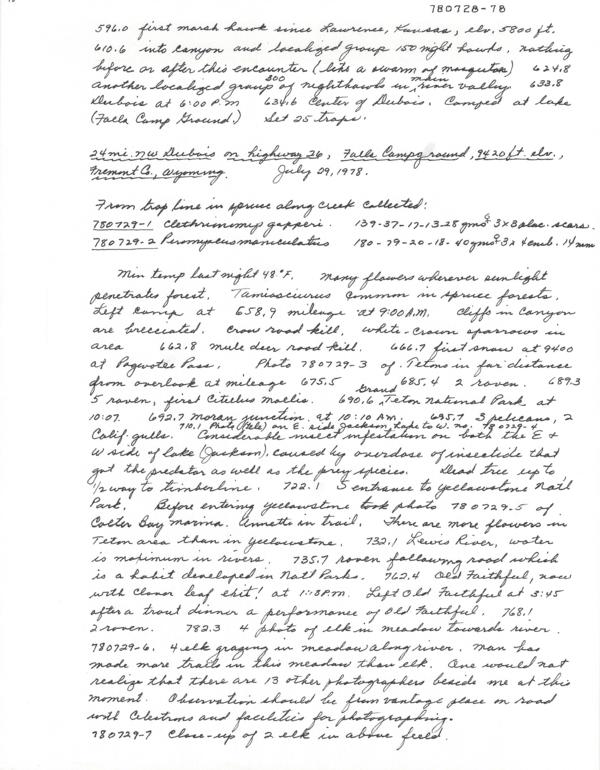 780728-78
596.0 first marsh hawk since Lawrence, Kansas, elv. 5800 ft.
610.6 into canyon and localized group 150 night hawks, nothing
before or after this encounter (like a swarm of mosquitos) 624.8
another localized group 300 of nighthawks in main river valley 633.8
Dubois at 6:00 P.M 634.6 Center of Dubois. Camped at lake
(Falls Camp Ground.) Set 25 traps.
24 mi. NW Dubois on highway 26, Falls Campground, 9420 ft. elv.,
Fremont Co., Wyoming. July 29, 1978.
From trap line in spruce along creek collected:
780729-1 Clethrionomys gapperi. 139-37-17-13-28 gms ♀ 3x3 plac. scars.
780729-2 Peromyscus maniculatus 180-79-20-18-40 gms ♀ 3x4 emb. 14 mm
Min temp last night 48°F. Many flowers wherever sunlight
penetrates forest. Tamiasciurus common in spruce forests.
Left camp at 658.9 mileage at 9:00 A.M. Cliffs in Canyon
are brecciated. Crow road kill. White-crown sparrows in
area 662.8 mule deer road kill. 666.7 first snow at 9400
at Pogwotee Pass. Photo 780729-3 of Tetons in far distance
from overlook at mileage 675.5 685.4 2 raven. 689.3
5 raven, first Citellus mollis. 690.6 Grand Teton National Park at
10:07. 692.7 Moran Junction at 10:10 AM. 695.7 3 pelicans, 2
Calif. gulls. 710.1 Photo (Tele) on E. side Jackson Lake to W. no. 780729-4
Considerable insect infestation on both the E &
W side of lake (Jackson), caused by overdose of insecticide that
got the predator as well as the prey species. Dead tree up to
1/2 way to timberline. 722.1 S entrance to Yellowstone Nat'l
Park. Before entering Yellowstone took photo 780729-5 of
Colter Bay marina. Annette in trail. There are more flowers in
Teton area than in Yellowstone. 732.1 Lewis River, water
is maximum in rivers. 735.7 raven following road which
is a habit developed in Nat'l Parks. 762.4 Old Faithful, now
with clover leaf exit! at 1:15 P.M. Left Old Faithful at 3:45
after a trout dinner a performance of Old Faithful. 768.1
2 raven. 782.3 4 photo of elk in meadow towards river.
780729-6. 4 elk grazing in meadow along river. Man has
made more trails in this meadow than elk. One would not
realize that there are 13 other photographers beside me at this
moment. Observation should be from vantage place on road
with Celestrons and facilities for photographing.
780729-7 Close-up of 2 elk in above field.